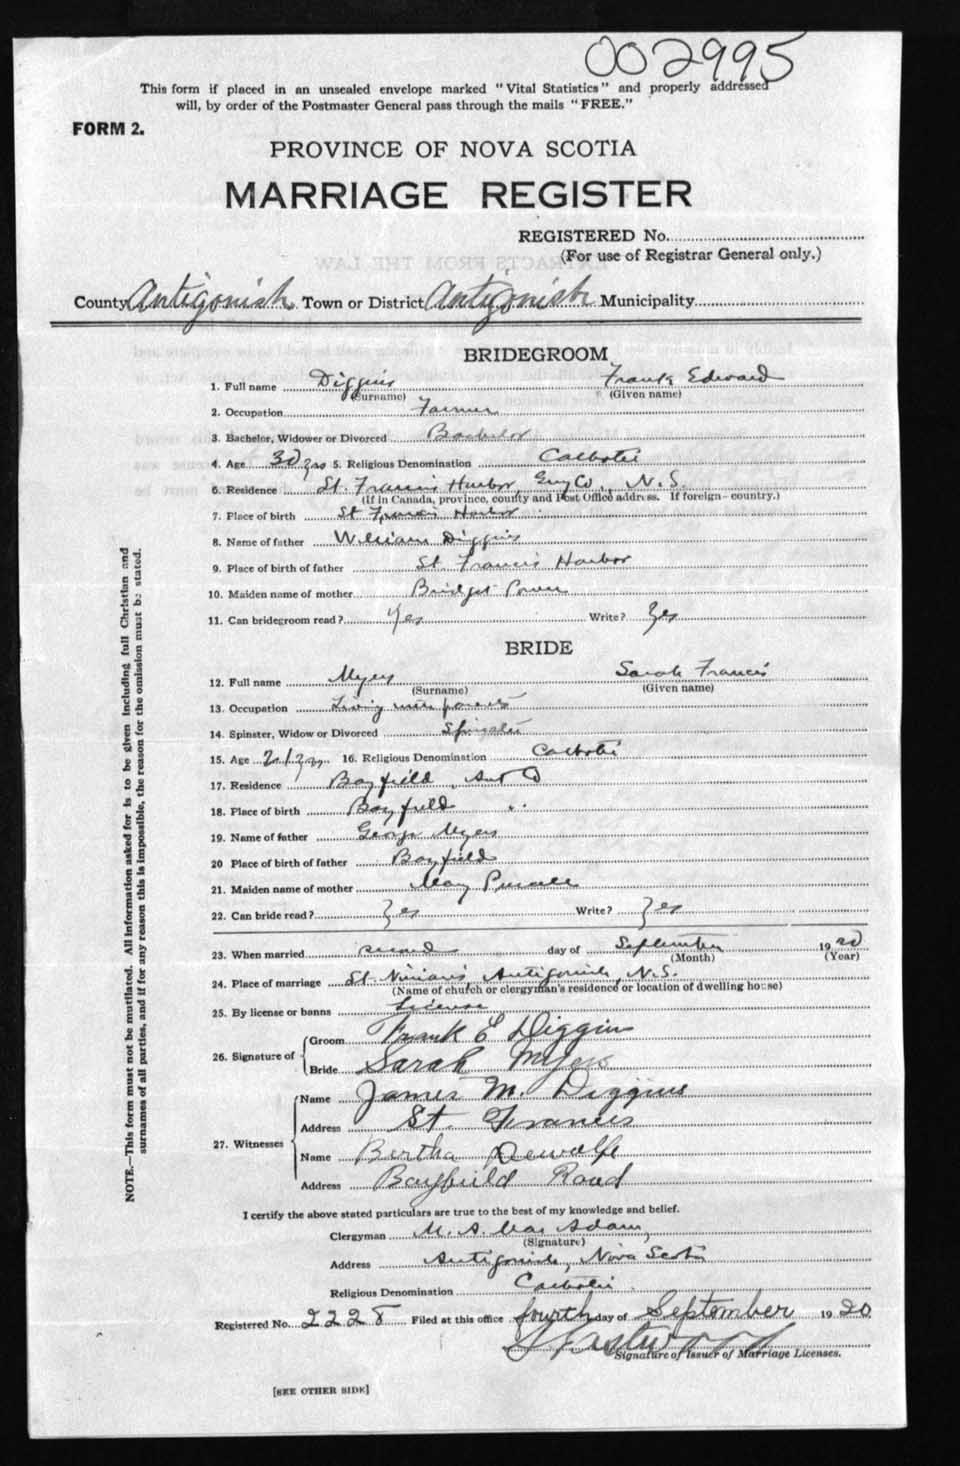 002995
This form if placed in an unsealed envelope marked "Vital Statistics" and properly addressed
will, by order of the Postmaster General pass through the mails "FREE."
FORM 2.
PROVINCE OF NOVA SCOTIA
MARRIAGE REGISTER
REGISTERED No.
(For use of Registrar General only.)
County Antigonish Town or District Antigonish Municipality
BRIDEGROOM
1. Full name Diggins Frank Edward
(Surname) (Given name)
2. Occupation Farmer
3. Bachelor, Widower or Divorced Bachelor
4. Age 30 yrs 5. Religious Denomination Catholic
6. Residence St. Francis Harbor, Guy Co., N.S.
(If in Canada, province, county and Post Office address. If foreign—country.)
7. Place of birth St Francis Harbor
8. Name of father William Diggins
9. Place of birth of father St. Francis Harbor
10. Maiden name of mother Bridget Power
11. Can bridegroom read? Yes Write? Yes
BRIDE
12. Full name Myers Sarah Francis
(Surname) (Given name)
13. Occupation Living with parents
14. Spinster, Widow or Divorced Spinster
15. Age 21 yrs. 16. Religious Denomination Catholic
17. Residence Bayfield, Ant Co
18. Place of birth Bayfield "
19. Name of father George Myers
20 Place of birth of father Bayfield
21. Maiden name of mother May
22. Can bride read? Yes Write? Yes
23. When married second day of September 1920
(Month) (Year)
24. Place of marriage St. Ninian's, Antigonish, N.S.
(Name of church or clergyman's residence or location of dwelling house)
25. By license or banns License
26. Signature of
Groom Frank E Diggin
Bride Sarah Myers
27. Witnesses
Name James M. Diggins
Address St. Francis
Name Bertha Dewolfe
Address Bayfield Road
I certify the above stated particulars are true to the best of my knowledge and belief.
Clergyman M. A. MacAdam,
(Signature)
Address Antigonish, Nova Scotia
Religious Denomination Catholic.
Registered No. 2228 Filed at this office fourth day of September 1920
Signature of Issuer of Marriage Licenses.
[SEE OTHER SIDE]
NOTE.—This form must not be mutilated. All information asked for is to be given including full Christian and
surnames of all parties, and if for any reason this is impossible, the reason for the omission must be stated.